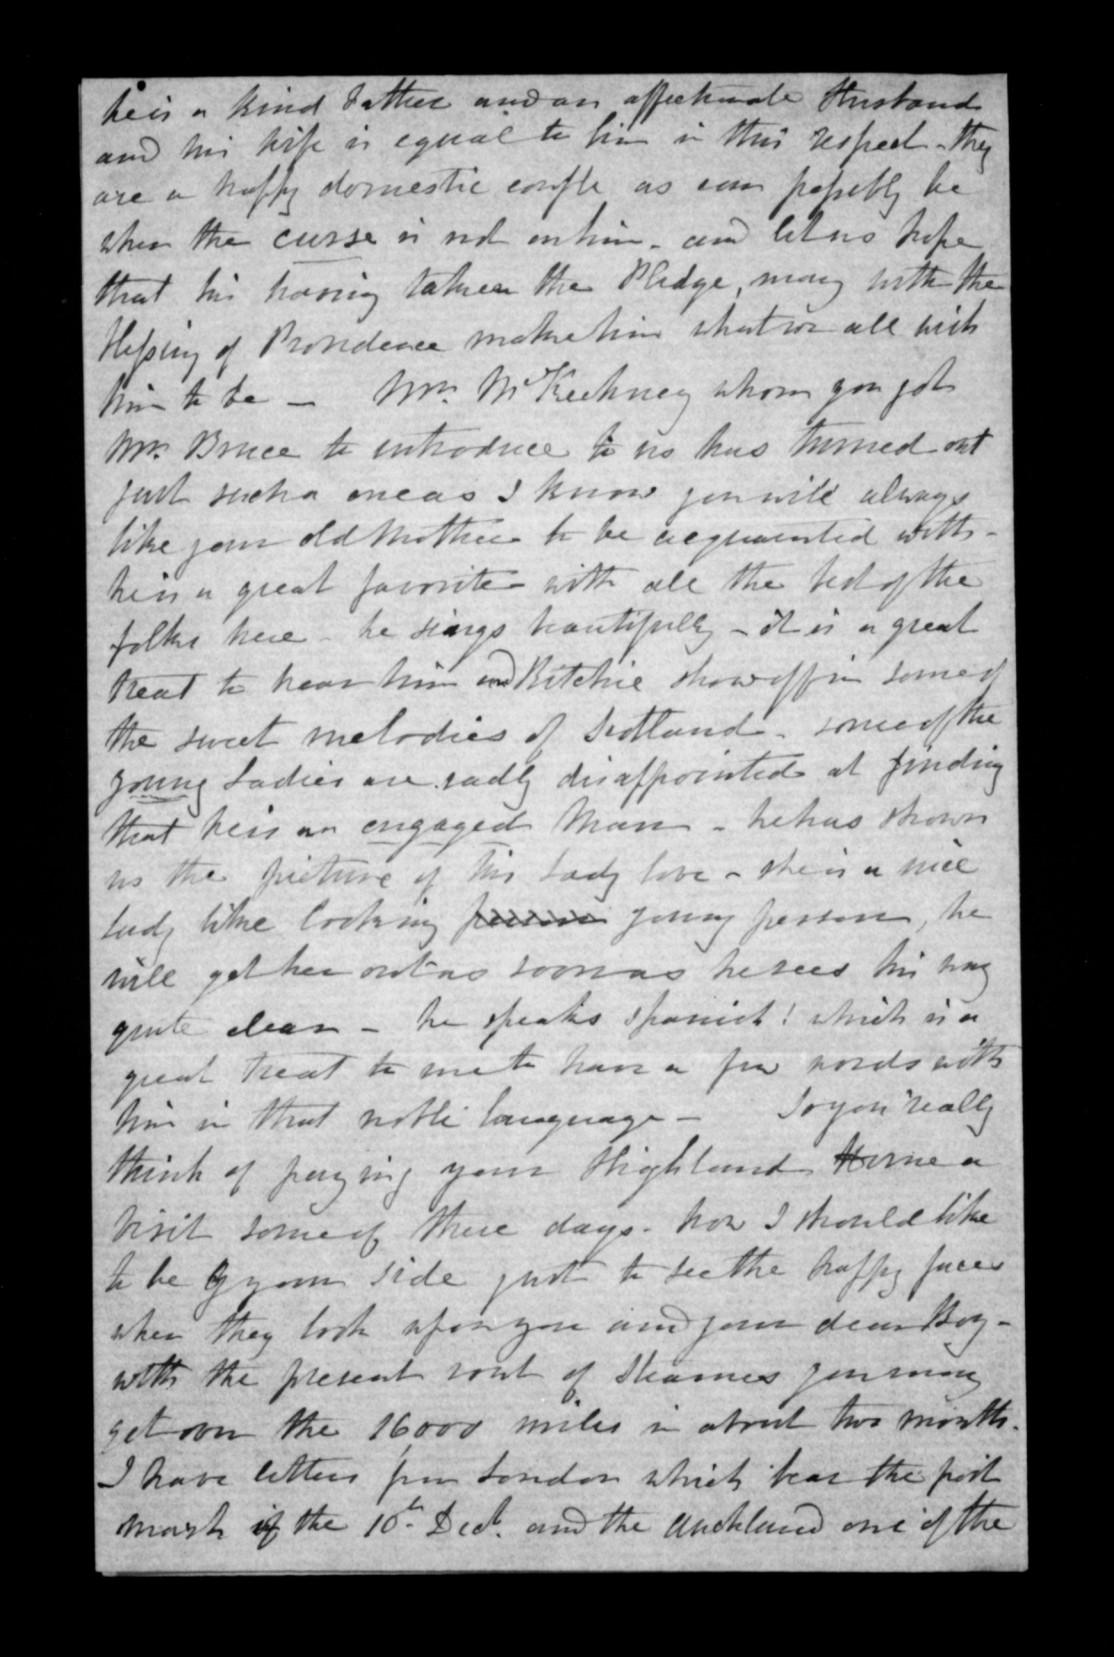 he is a kind Father and an affectionate Husband
and his wife is equal to him in this respect - they
are a happy domestic couple as can possibly be
when the curse is not on him - and let us hope
that his having taken the Pledge, may with the
blessing of Providence make him what we all wish
him to be — Mr. McKechney whom you got
Mr. Bruce to introduce to us has turned out
just such a one as I know you will always
like your old Mother to be acquainted with -
he is a great favorite with all the best of the
folks here - he sings beautifully - it is a great
treat to hear him and Ritchie show off in some of
the sweet melodies of Scotland - some of the
young Ladies are sadly disappointed at finding
that he is an engaged Man - he has shown
us the picture of his Lady love - she is a nice
lady like looking person young person, he
will get her out as soon as he sees his way
quite clear - he speaks Spanish! which is a
great treat to me to have a few words with
him in that noble language - So you really
think of paying your Highland Home a
visit some of these days - how I should like
to be by your side just to see the happy faces
when they look upon you and your dear Boy -
with the present rout of Steamers you may
get over the 16,000 miles in about two months.
I have letters from London which bear the post
mark of the 10th Decr. and the Auckland one of the